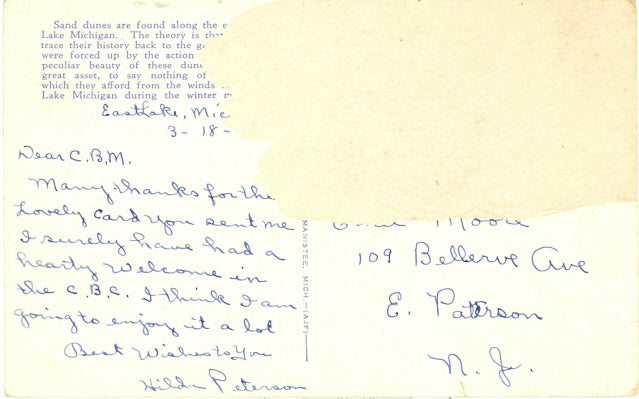 Sand dunes are found along the e
Lake Michigan. The theory is that
trace their history back to the g
were forced up by the action
peculiar beauty of these dune
great asset, to say nothing of
which they afford from the winds
Lake Michigan during the winter m
EastLake, Mic
3-18-
Dear C.B.M.
Many thanks for the
Lovely Card you sent me
I surely have had a
hearty Welcome in
the C.B.C. I think I am
going to enjoy it a lot
Best Wishes to You
Hilda Peterson
MANISTEE, MICH.—(AJF)
Moore
109 Bellerve Ave
E. Patterson
N. J.